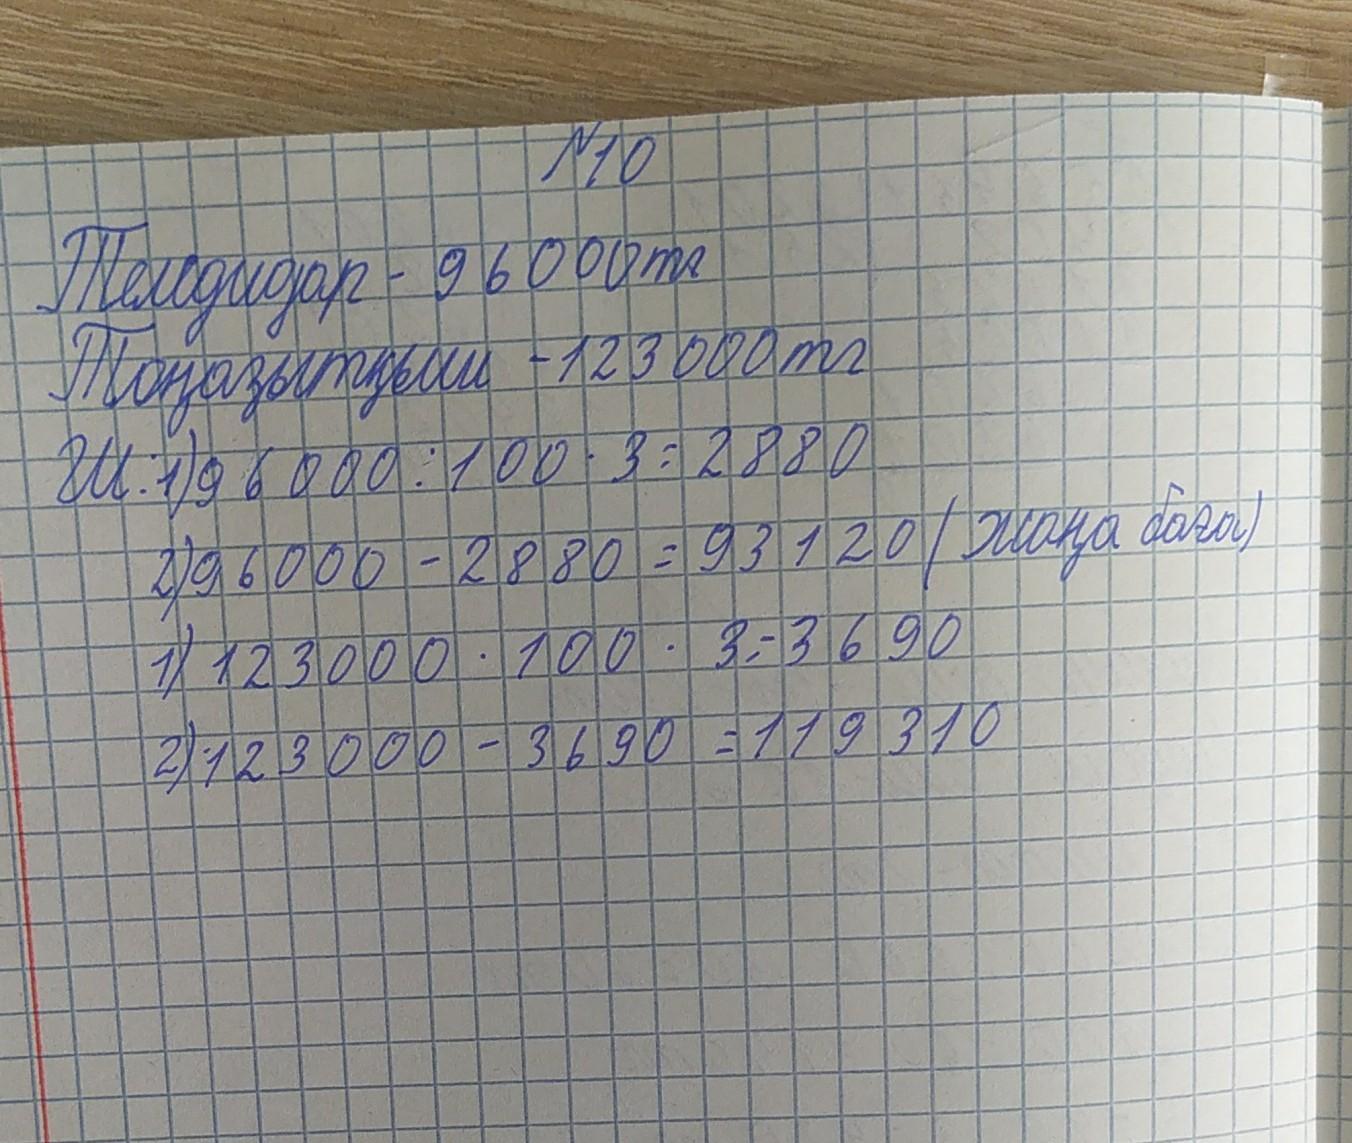 №10
Теледидар - 96000тг
Тоңазытқыш - 123000тг
Ш: 1) 96000 : 100 · 3 = 2880
2) 96000 - 2880 = 93120 (жаңа баға)
1) 123000 · 100 · 3 = 3690
2) 123000 - 3690 = 119310